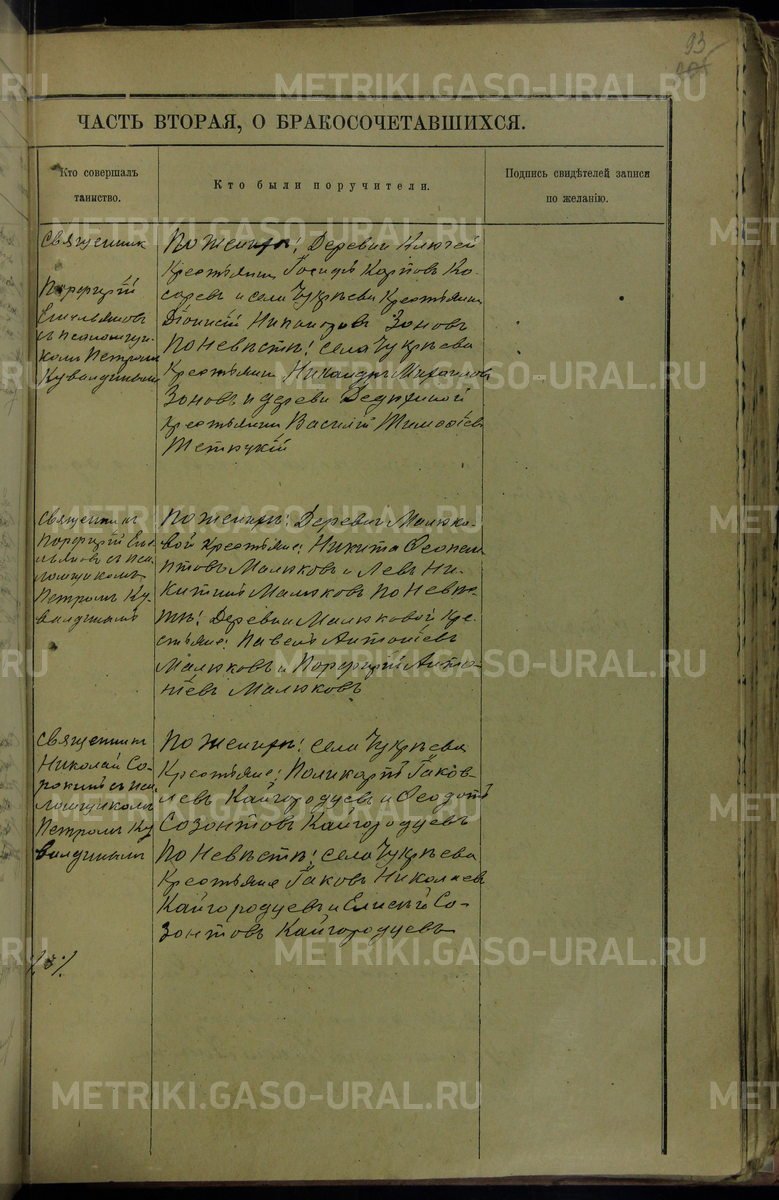 93
ЧАСТЬ ВТОРАЯ, О БРАКОСОЧЕТАВШИХСЯ.
Кто совершалъ
таинство.
Кто были поручители.
Подпись свидѣтелей записи
по желанію.
Священник
Порфирій
Емельяновъ
съ псаломщи-
комъ Петромъ
Кувалдинымъ
По женихѣ: Деревни Ключей
Крестьянинъ Іосифъ Карповъ Ко-
саревъ и села Чукрѣева Крестьянинъ
Діонисій Зоновъ
По Невѣстѣ: села Чукрѣева
Крестьянинъ Никандръ Михаиловъ
Зоновъ и деревни
Крестьянинъ Василій Тимофѣевъ
Священникъ
Порфирій Еме-
льяновъ съ пса-
ломщикомъ
Петромъ Ку-
валдинымъ
По женихѣ: Деревни Малько-
вой Крестьяне: Никита
Мальковъ и Левъ Ни-
китинъ Мальковъ По Невѣс-
тѣ: Деревни Мальковой Кре-
стьяне: Павелъ Антоніевъ
Мальковъ и Порфирій Анто-
ніевъ Мальковъ
Священникъ
Николай Со-
рокинъ съ пса-
ломщикомъ
Петромъ Ку-
валдинымъ
По женихѣ: села Чукрѣева
Крестьяне: Поликарпъ Іаков-
левъ Кайгородцевъ и Феодотъ
Созонтовъ Кайгородцевъ
По Невѣстѣ: села Чукрѣева
Крестьяне Іаковъ Николаевъ
Кайгородцевъ и Елисѣй Со-
зонтовъ Кайгородцевъ
METRIKI.GASO-URAL.RU